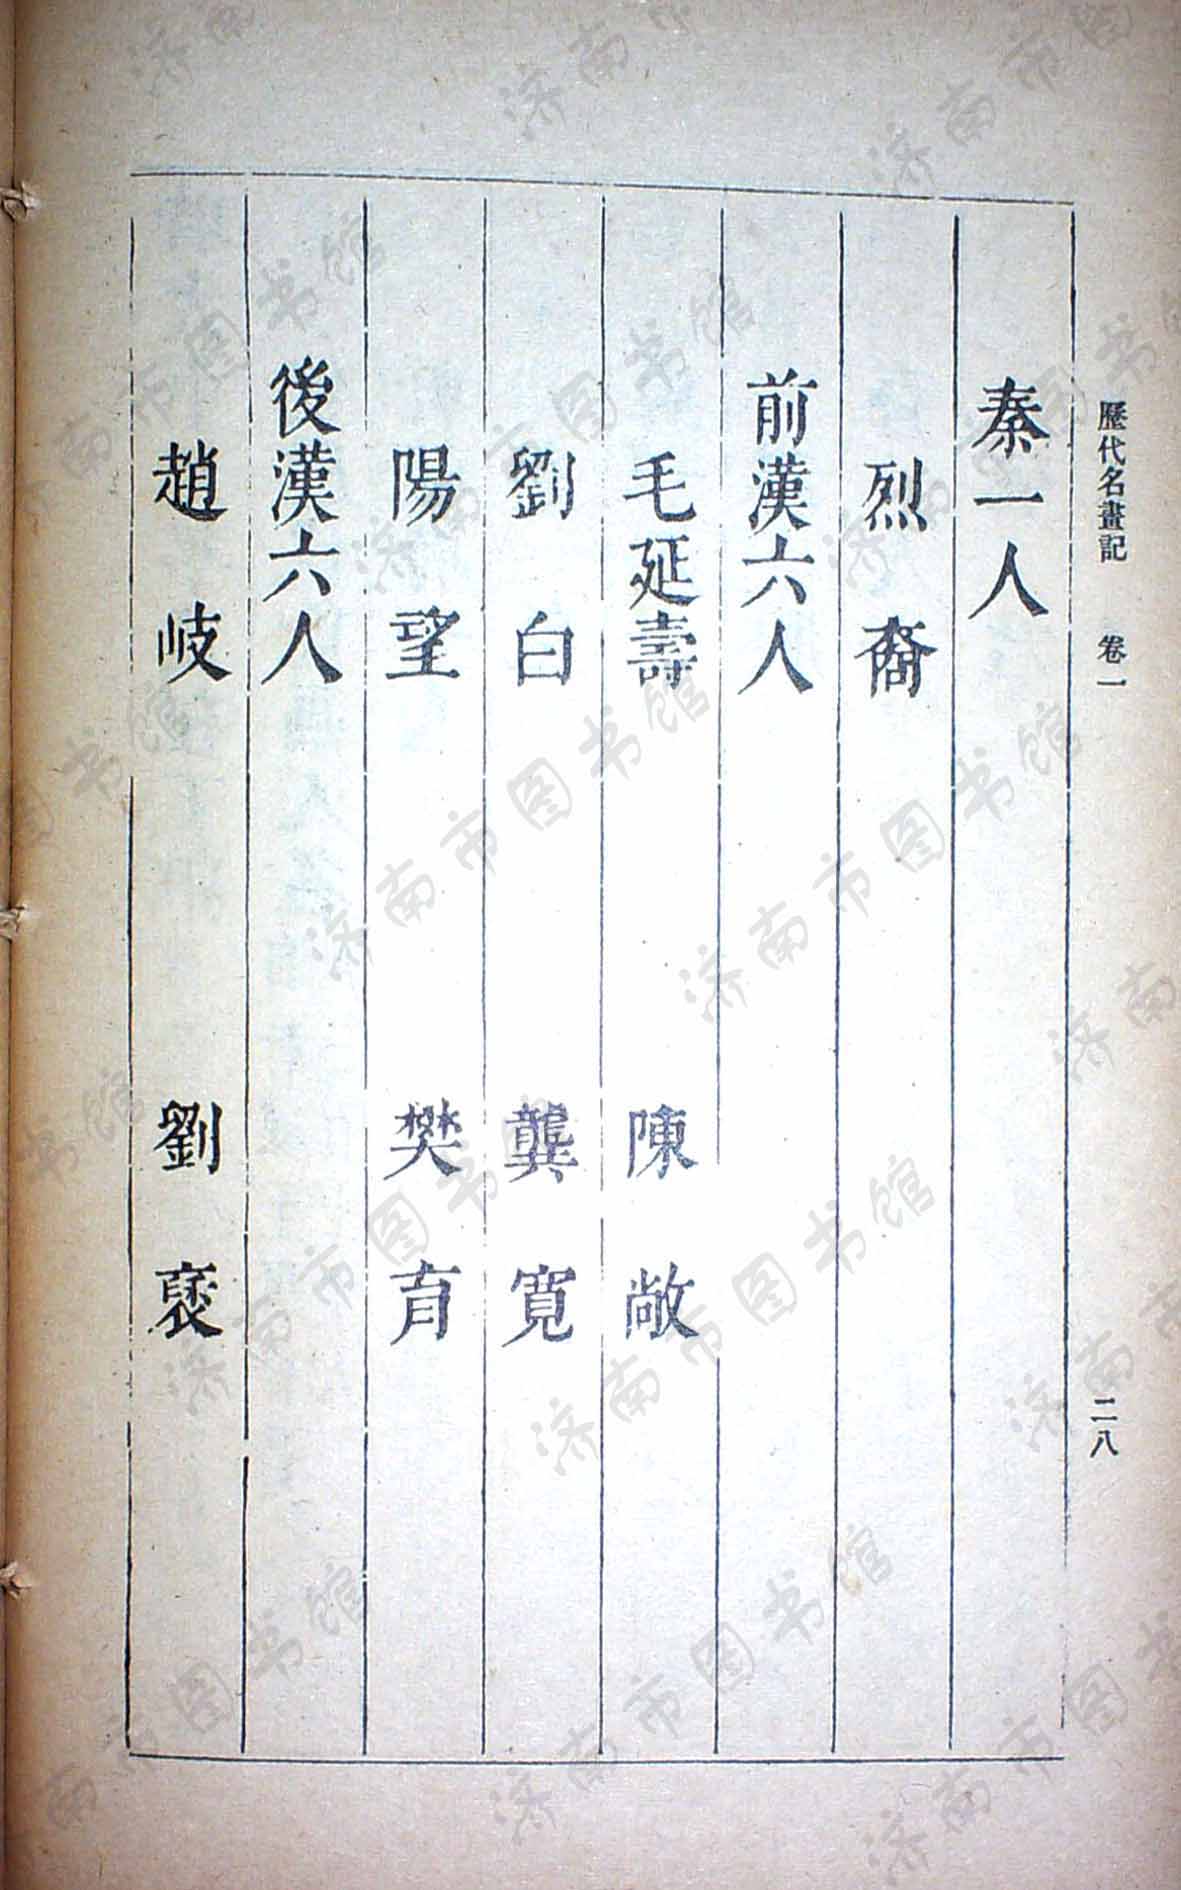 歷代名畫記 卷一 二八
秦一人
烈裔
前漢六人
毛延壽 陳敞
劉白 龔寬
陽望 樊育
後漢六人
趙岐 劉褒
济南市图书馆